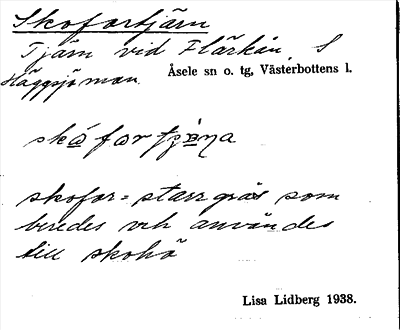 Skofortjärn
Tjärn vid Flärkån, S
Häggsjömon.
Åsele sn o. tg, Västerbottens l.
skofor = starrgräs som
beredes och användes
till skohö
Lisa Lidberg 1938.